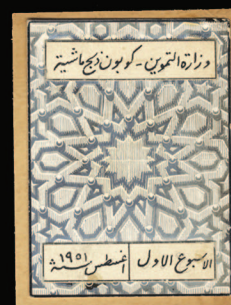 وزارة التموين - كوبون ذبح ماشية
الاسبوع الاول
اغسطس سنة ١٩٥١